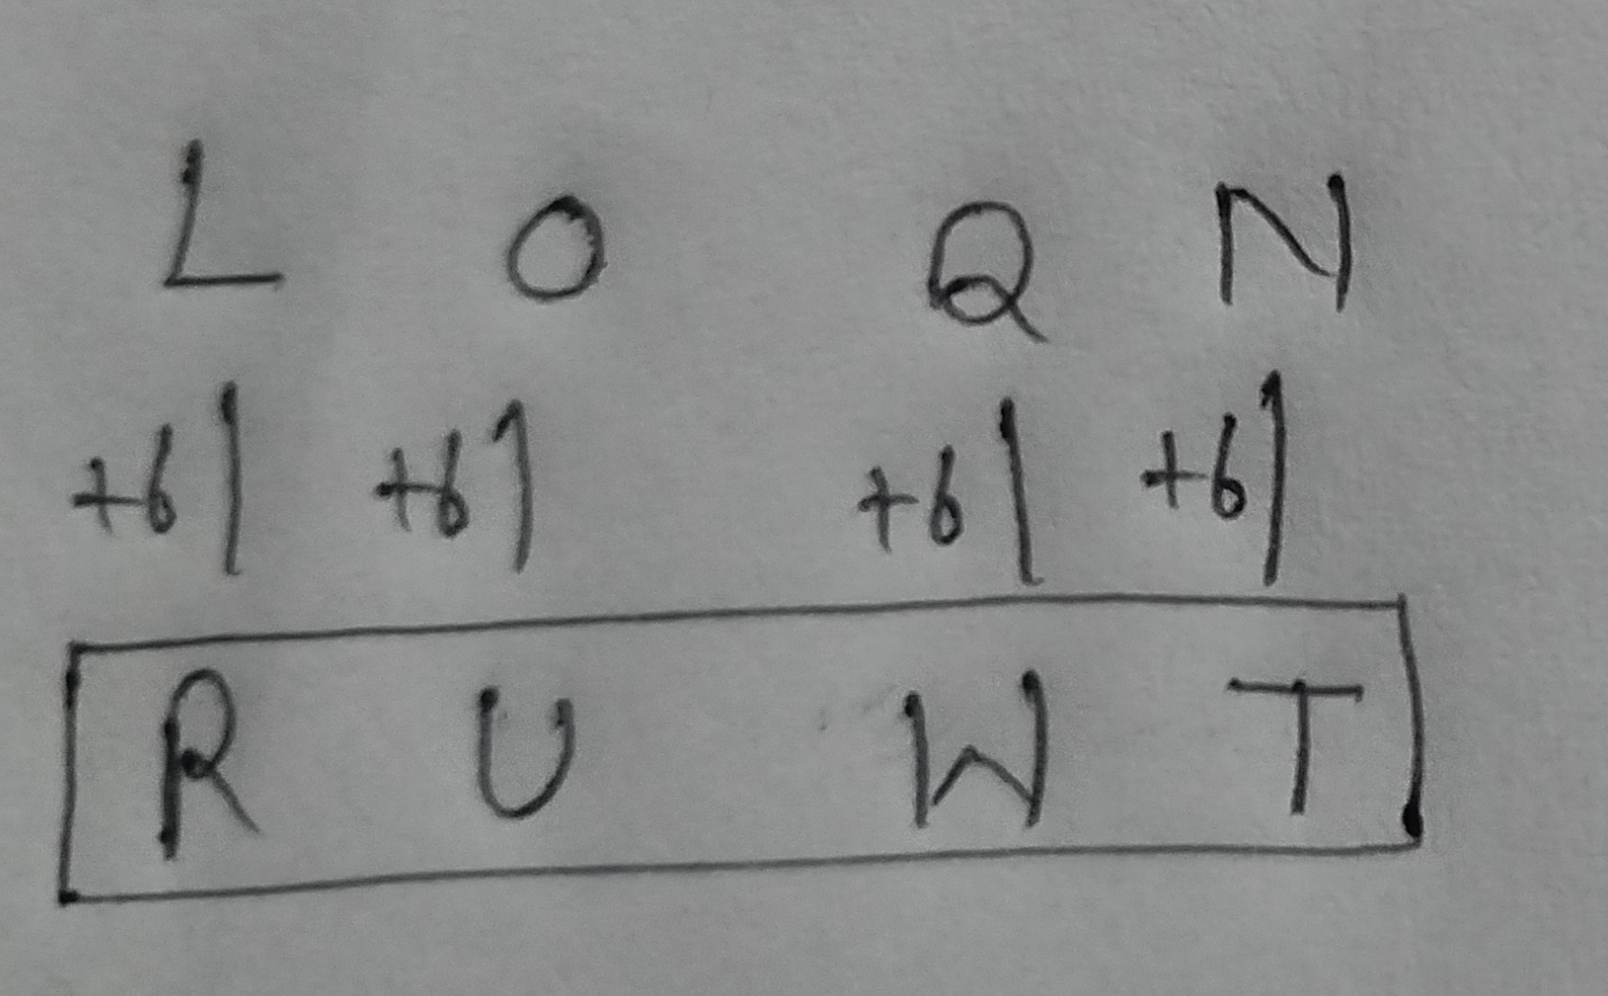 L O Q N
+6 +6 +6 +6
R U W T